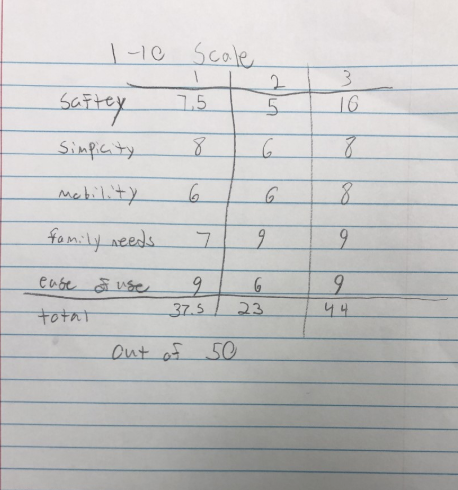 1-10 Scale
1 2 3
Saftey 7.5 5 10
Simplicity 8 6 8
mobility 6 6 8
family needs 7 9 9
ease of use 9 6 9
total 37.5 23 44
out of 50